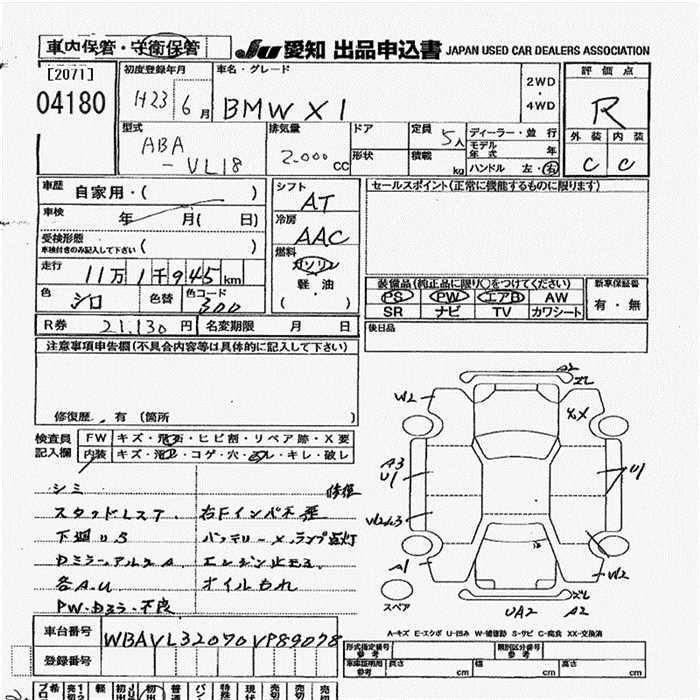 車内保管・守衛保管
JU 愛知 出品申込書 JAPAN USED CAR DEALERS ASSOCIATION
[2071]
04180
初度登録年月
H23 6月
車名・グレード
BMW X1
2WD
・
4WD
評価点
R
外装 内装
C C
型式
ABA
-VL18
排気量
2.000cc
ドア
形状
定員 5人
積載 kg
ディーラー・並行
モデル年式 年
ハンドル 左・右
車歴 自家用・( )
車検 年 月( 日)
受検形態
車検付きのみ記入して下さい ( )
走行 11万1千945km
色 シロ 色替 色コード 300
シフト AT
冷房 AAC
燃料 ガソリン
軽・油
( )
セールスポイント(正常に機能するものに限ります)
装備品(純正品に限り○をつけてください)
PS PW エアB AW
SR ナビ TV カワシート
新車保証書
有・無
後日品
R券 21.130円 名変期限 月 日
注意事項申告欄(不具合内容等は具体的に記入して下さい)
修復歴. 有(箇所 )
検査員記入欄
FW キズ・飛石・ヒビ割・リペア跡・X要
内装 キズ・コゲ・穴・スレ・キレ・破レ
シミ 修復
スタッドレスT. 右Fインパネ歪
下廻りS バッテリーメランプ点灯
Dミラー.アルミA
各A.U オイルもれ
PW.Dミラー不良
A2
スレ
W2
XX
A3
U1
U1
W2
A1
W2
スレ
UA2 A2
スペア
A-キズ E-エクボ U-凹み W-補修跡 S-サビ C-腐食 XX-交換済
車台番号 WBAVL32070VP89078
登録番号
形式指定番号 参考
類別区分番号 参考
車庫証明用 参考 長さ cm 幅 cm 高さ cm